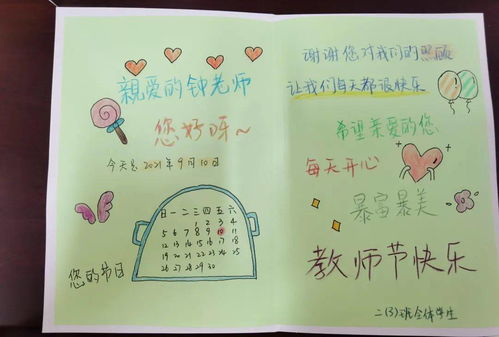 親爱的钟老师
您好呀~
今天是2021年9月10日
日一二三四五六
1 2 3 4
5 6 7 8 9 10 11
12 13 14 15 16 17 18
19 20 21 22 23 24 25
26 27 28 29 30
您的节日
谢谢您对我们的照顾
让我们每天都很快乐
希望亲爱的您
每天开心
暴富暴美
教师节快乐
二(3)班全体学生